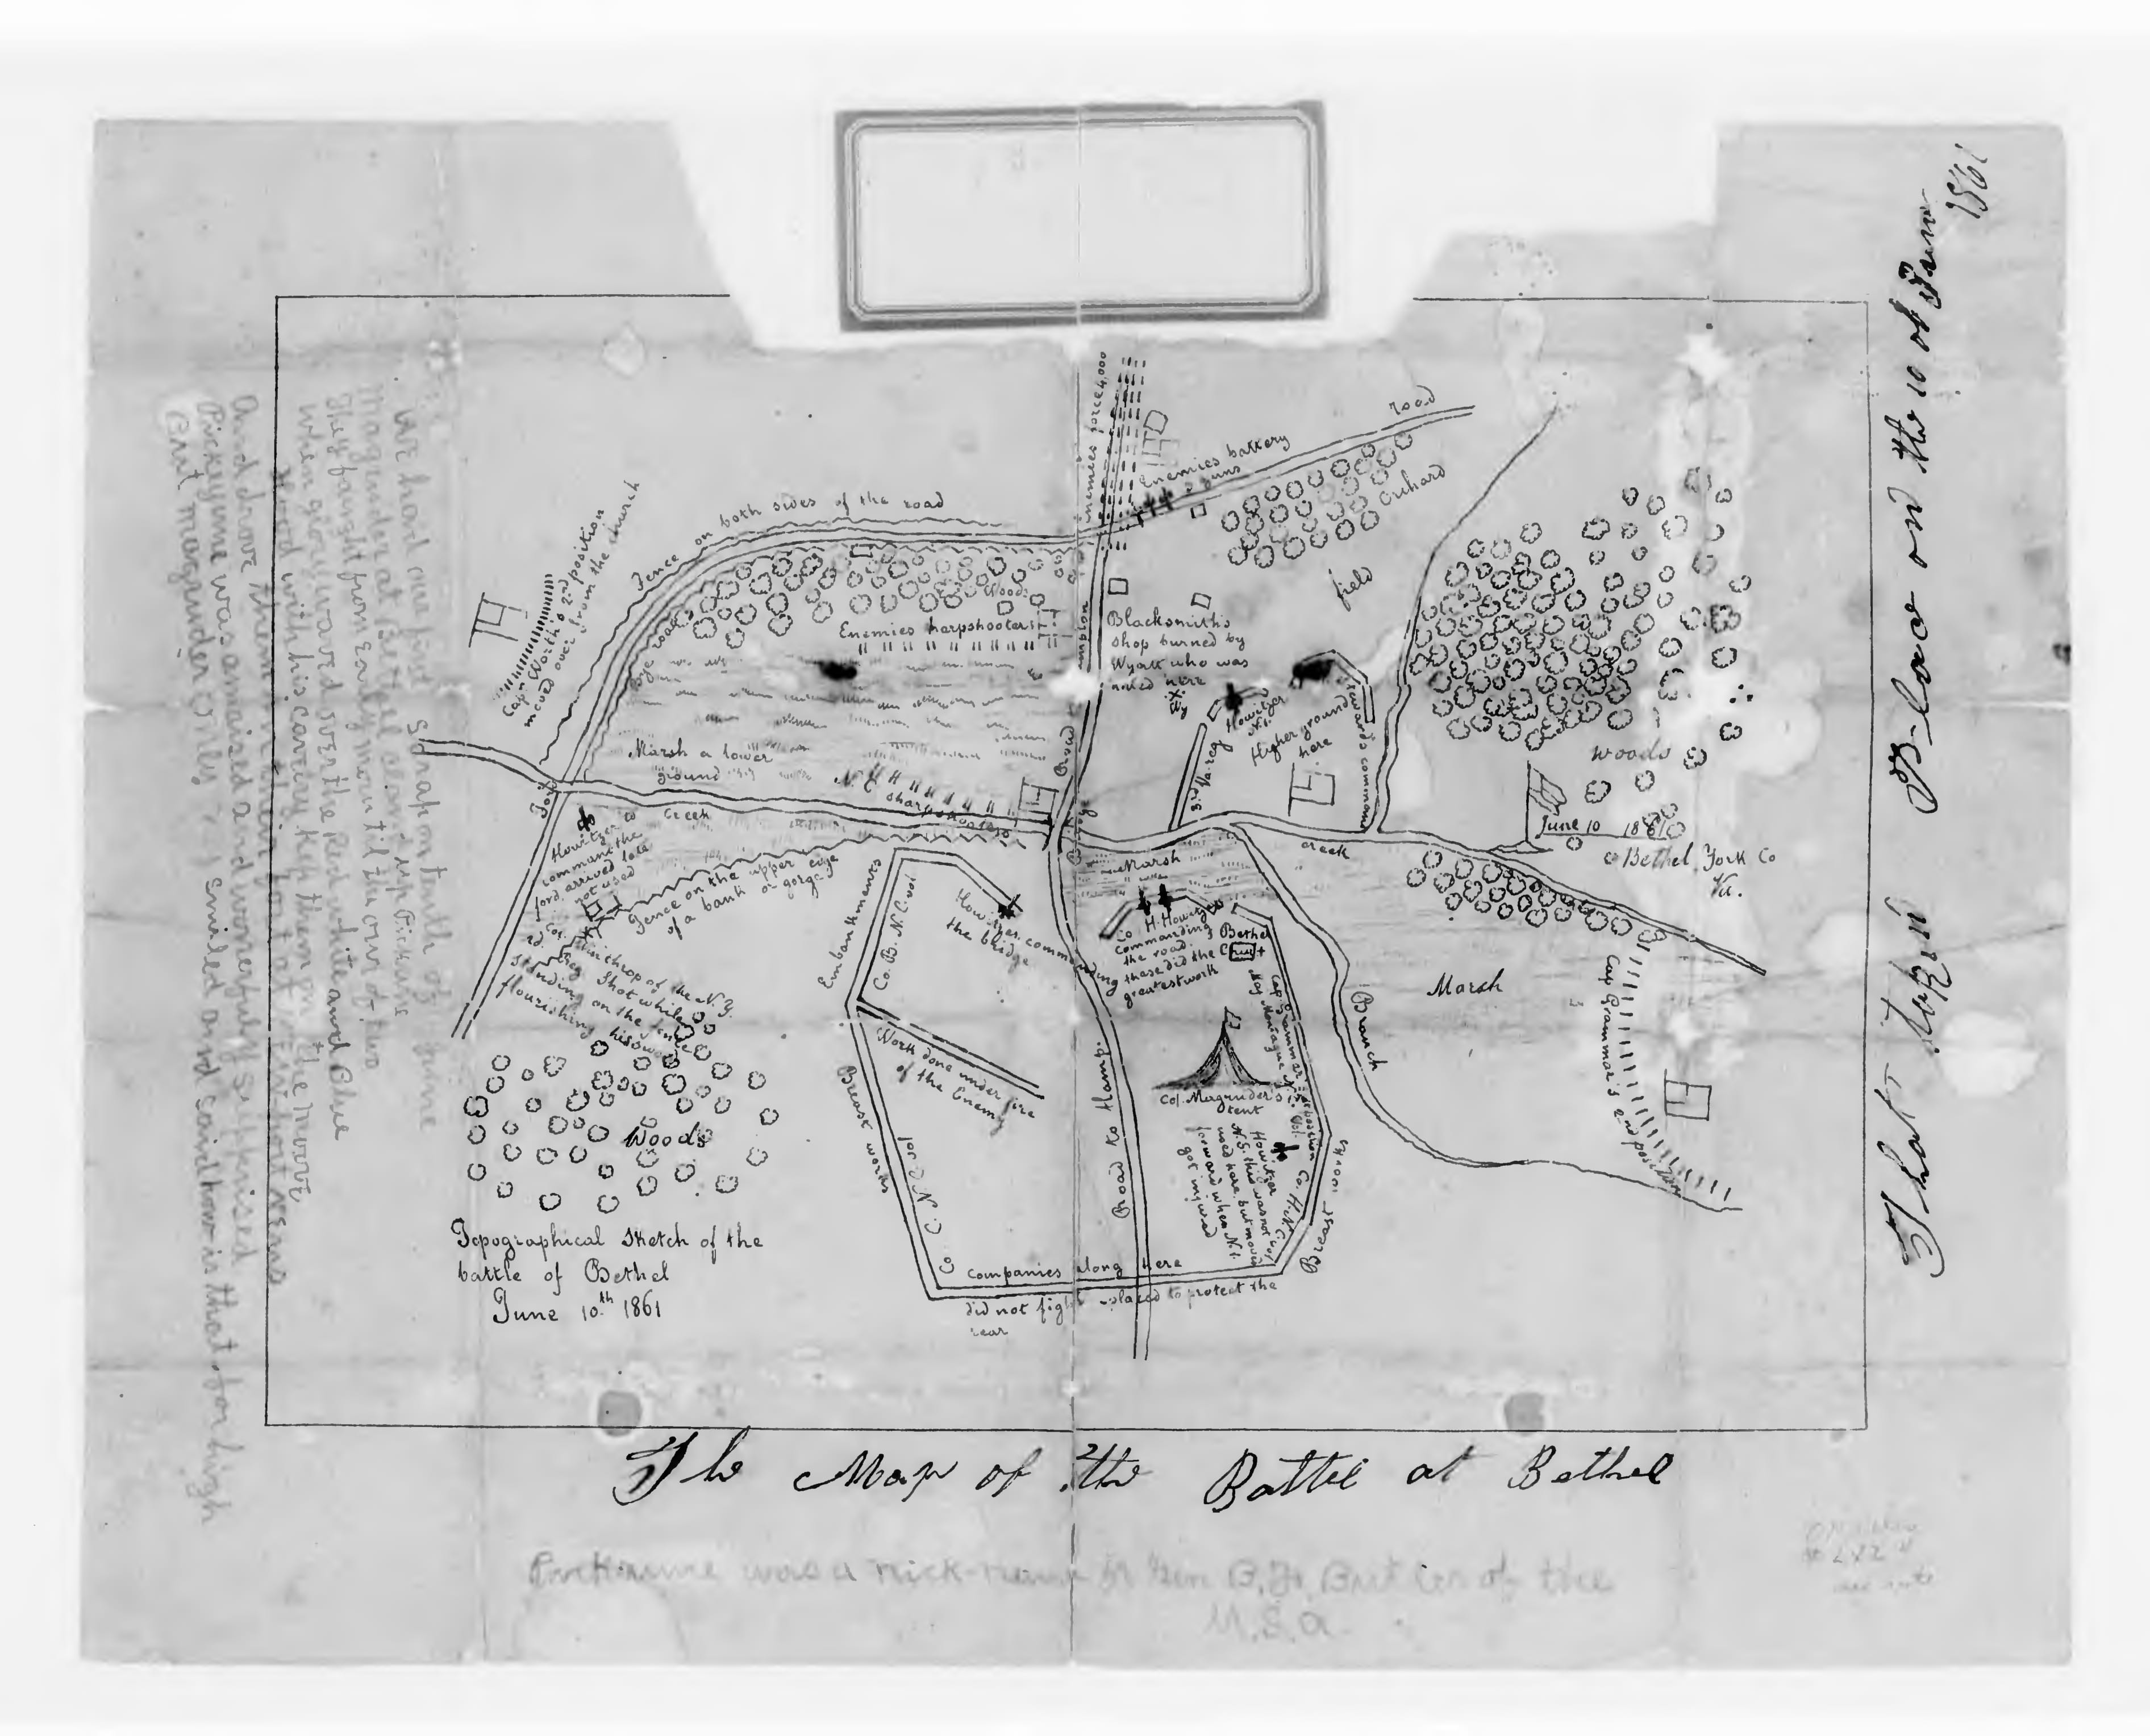 We had our first scrap on tenth of June
Magruder at Bethel along up Pickune
They faught from early morn til the our of two
When glory waved over the Red white and Blue
Hood with his cavelry kep them on the moove
And drove them in their
Pickeyune was amaised and wonerfuly serprised
But magruder smiled and said how is that for high
enemies force 4,000
road
Enemies battery
guns
Orchard
field
Fence on both sides of the road
Cap. Worth's 2nd position
moved over from the church
Bye road
Woods
Enemies sharpshooters
Blacksmith's
shop burned by
Wyatt who was
killed here
Wy
Howitzer
No. 1.
Higher ground
here
Steward's command
3rd Va. reg
woods
Marsh a lower
ground
N. C. sharpshooters
Road
Hampton
Ford
Creek
Bridge
Marsh
creek
June 10 1861
Bethel York Co
Va.
Howitzer to
command the
ford, arrived late
not used
Fence on the upper edge
of a bank or gorge
Col. Winthrop of the N. Y.
reg Shot while
standing on the fence
flourishing his sword
Embankments
Co. B. N. C. vol
Howitzer commanding
the bridge
Co. H. Howitzers
commanding
the road.
these did the
greatest work
Bethel
Ch
Marsh
Branch
Cap Grammar's 2nd position
Cap Grammar's 1st position
Maj Montague
Work done under fire
of the Enemy
Breast works
Col. Magruder's
tent
Howitzer
N. 5. this was not
used here, but moved
forward when N. 1.
got injured
Co. H. N. C. vol
Breast works
Road to Hamp.
Woods
Co
Companies along here
did not fight placed to protect the
rear
Topographical Sketch of the
battle of Bethel
June 10.th 1861
That Tokein P-lace on the 10 of June
1861
The Map of the Battel at Bethel
Pickaune was a nick-name for Gen B. F. Butler of the
U. S. A.